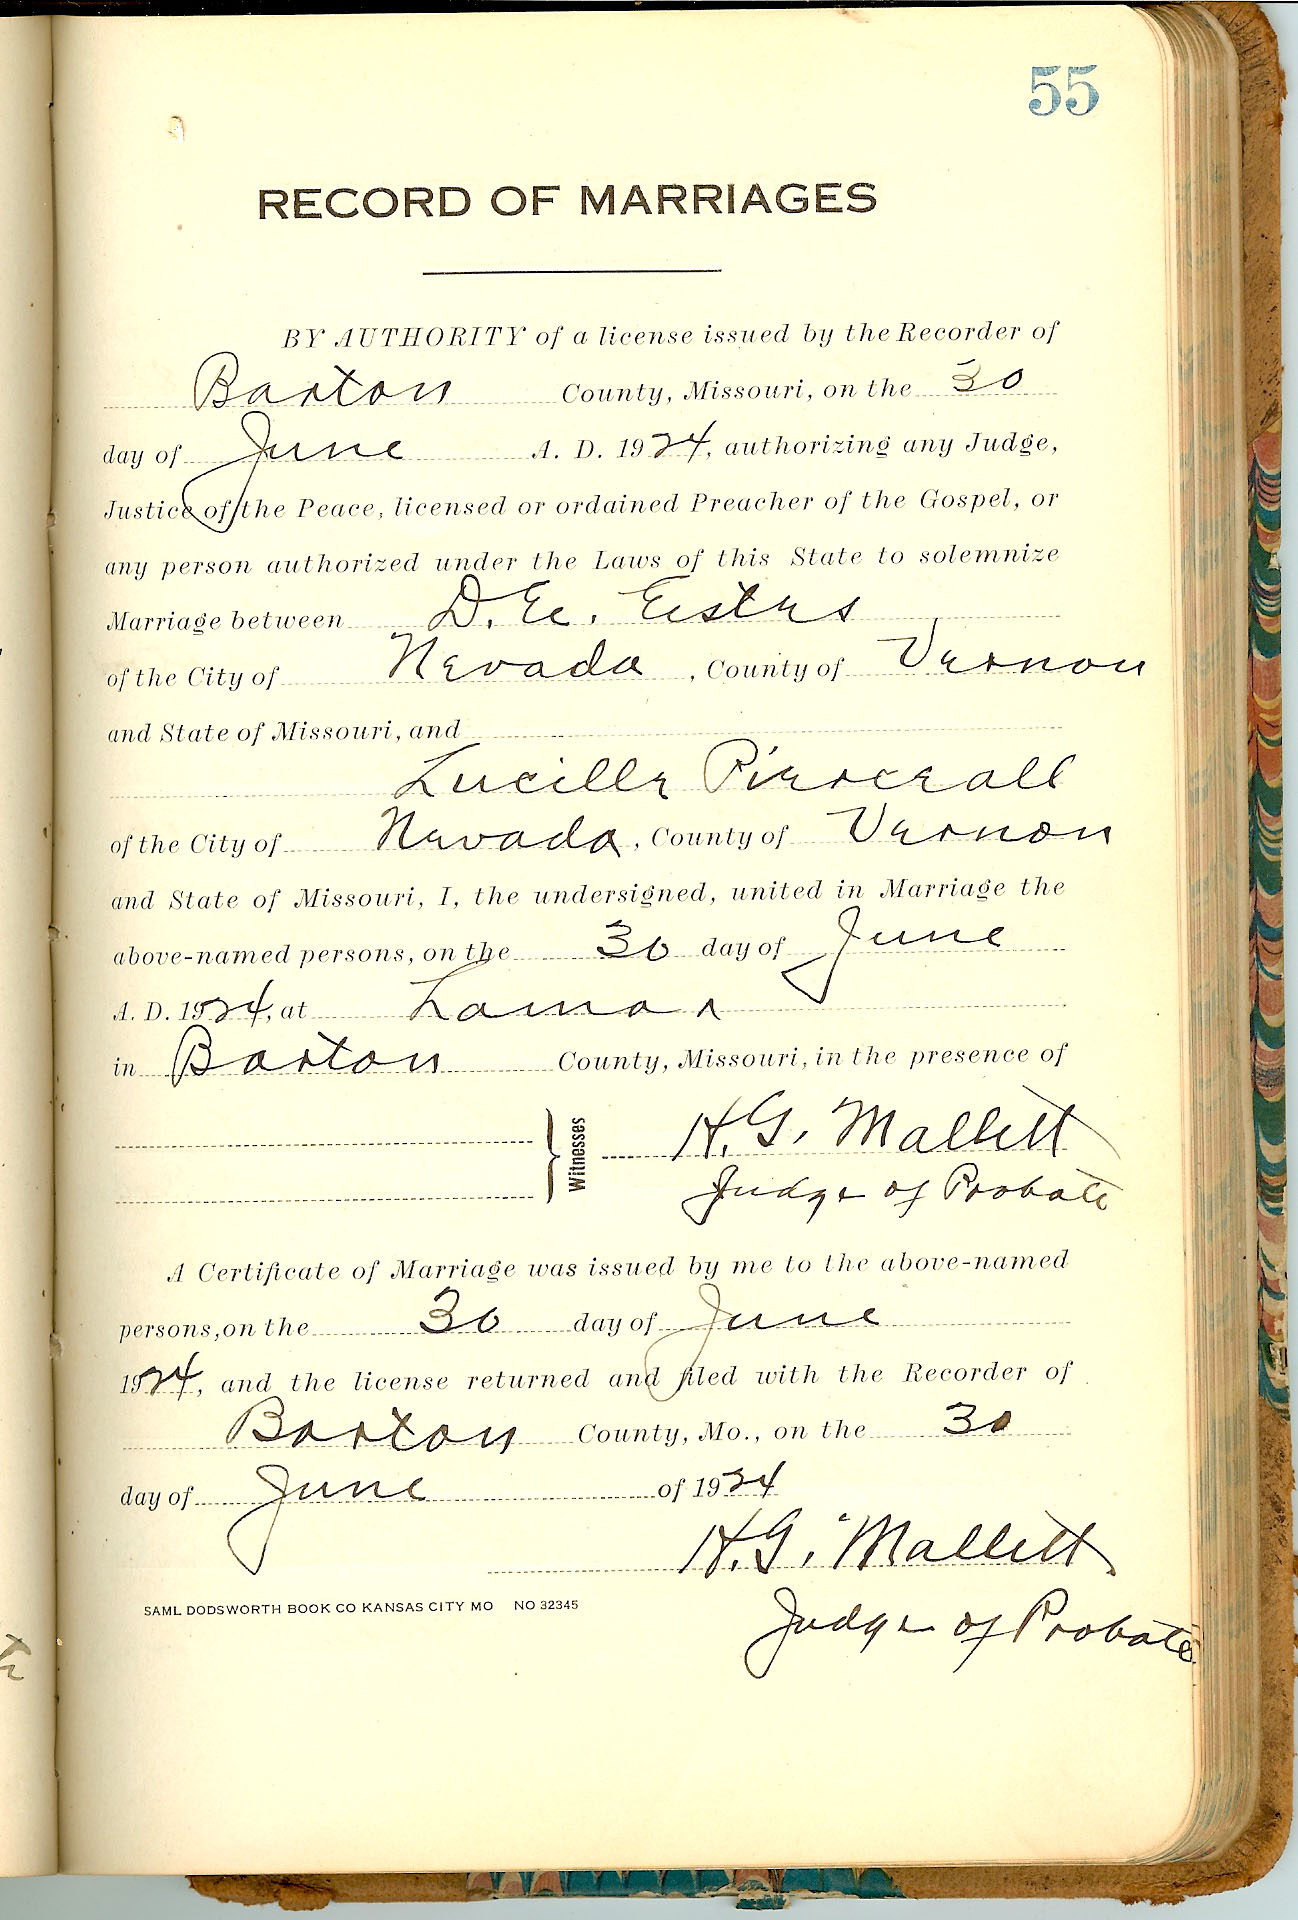 55
RECORD OF MARRIAGES
BY AUTHORITY of a license issued by the Recorder of
Barton County, Missouri, on the 30
day of June A. D. 1924, authorizing any Judge,
Justice of the Peace, licensed or ordained Preacher of the Gospel, or
any person authorized under the Laws of this State to solemnize
Marriage between D. E. Estes
of the City of Nevada, County of Vernon
and State of Missouri, and
Lucille
of the City of Nevada, County of Vernon
and State of Missouri, I, the undersigned, united in Marriage the
above-named persons, on the 30 day of June
A. D. 1924, at Lamar
in Barton County, Missouri, in the presence of
Witnesses H. G. Mallett
Judge of Probate
A Certificate of Marriage was issued by me to the above-named
persons, on the 30 day of June
1924, and the license returned and filed with the Recorder of
Barton County, Mo., on the 30
day of June of 1924
H. G. Mallett
SAML DODSWORTH BOOK CO KANSAS CITY MO NO 32345
Judge of Probate